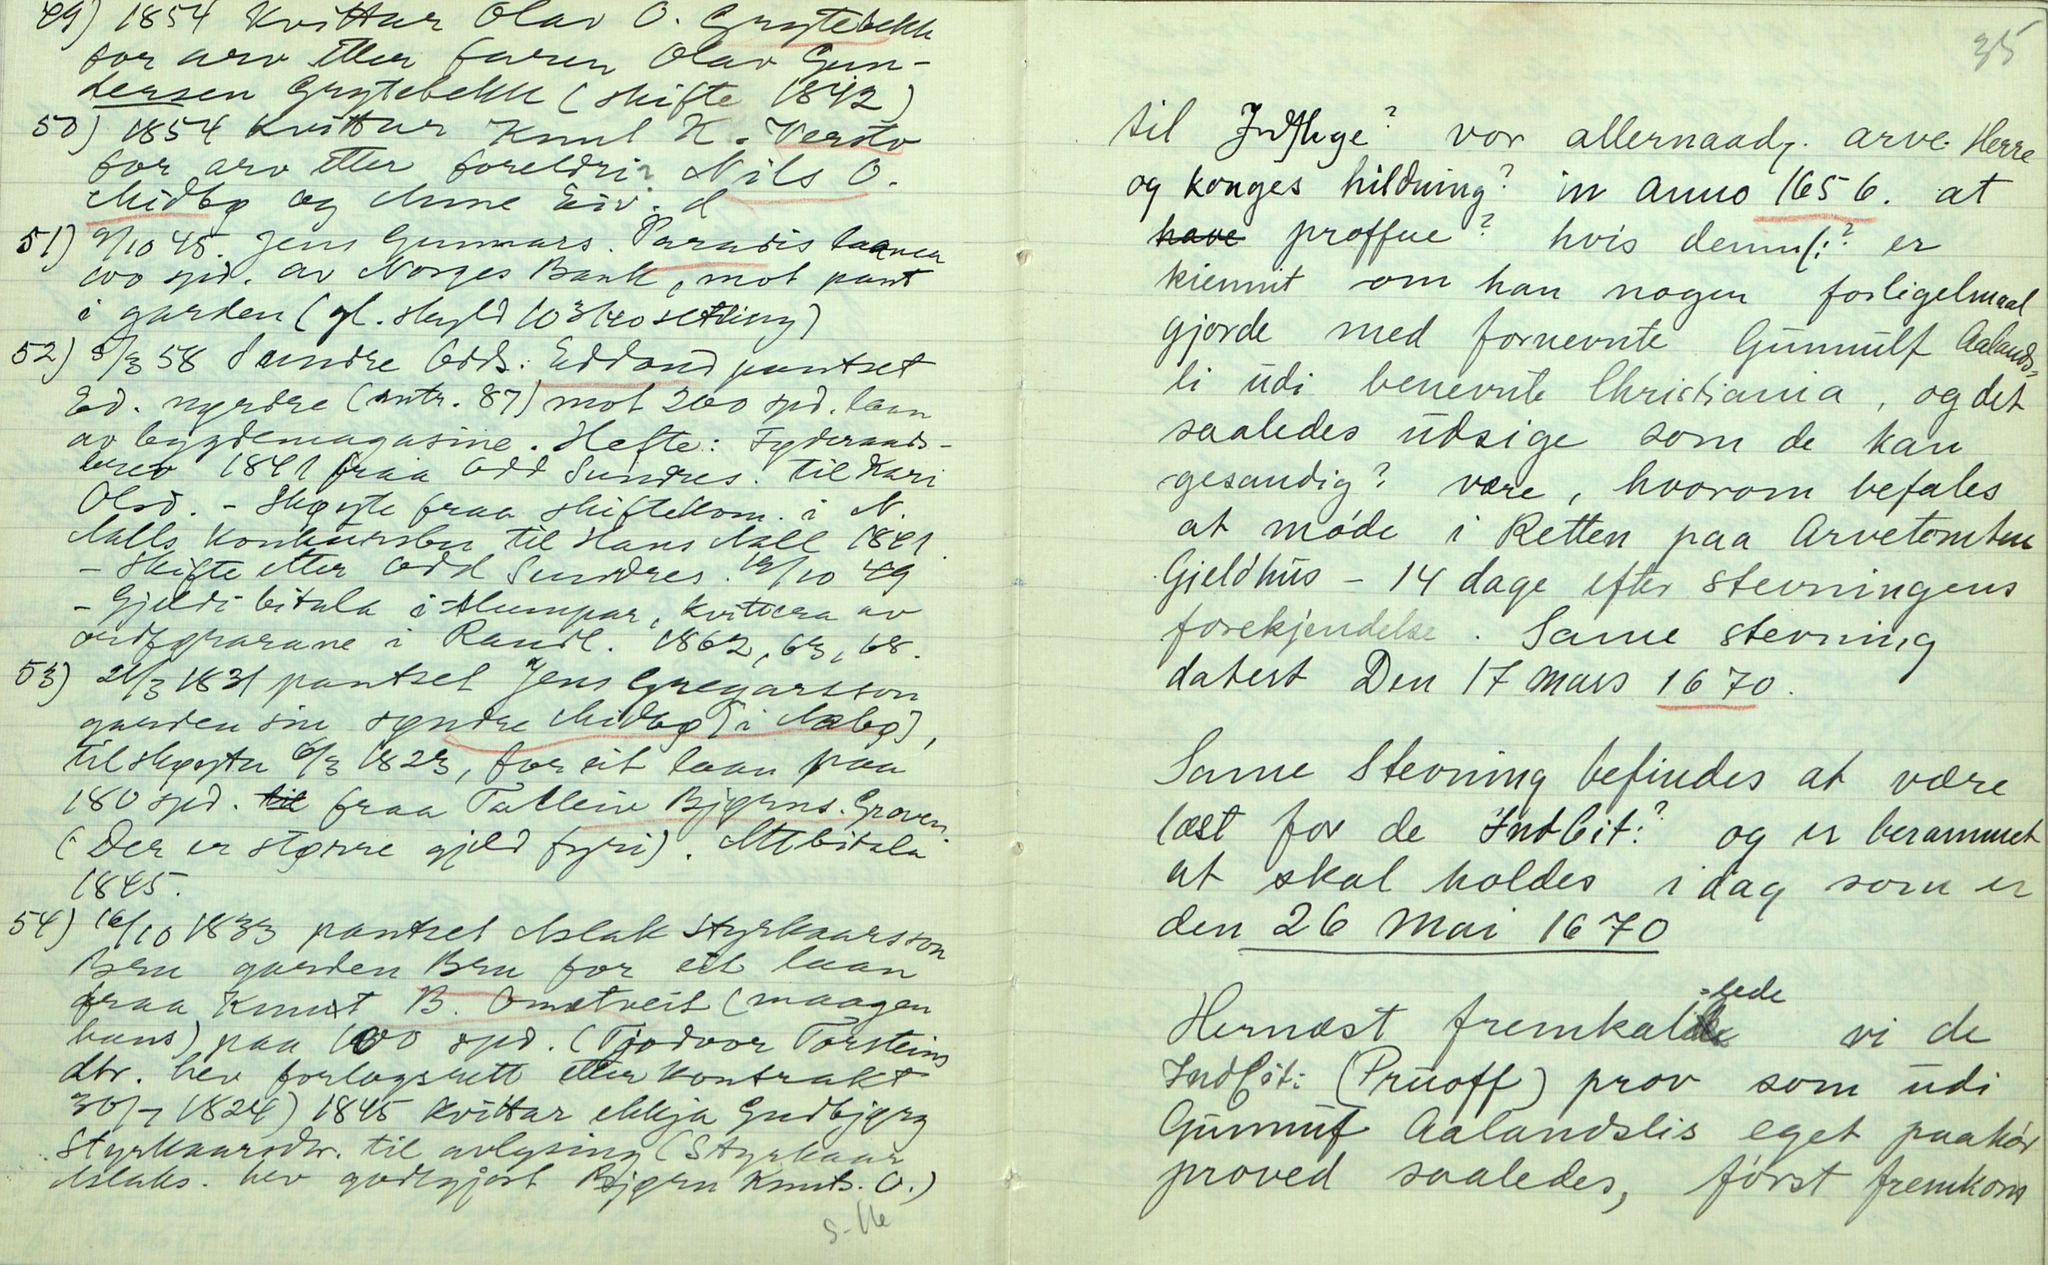 49) 1854 Kvittar Olav O. Grytebekk
for arv etter faren Olav Gun-
dersen Grytebekk (skifte 1842)
50) 1854 kvittar Knut K. Versto
for arv etter foreldri? Nils O.
Midbø og Anne Eiv. d
51) 9/10 45. Jens Gunnars. Paradis laaner
100 spd. av Norges Bank, mot pant
i garden (gl. skyld 10 3/40 setting)
52) 5/3 58 Sundre Odds. Edland pantset
Ed. nyrdre (mtr. 87) mot 200 spd. laan
av bygdemagasine. Hefte: Fyderaads-
brev 1841 fraa Odd Sundres. til Kari
Olsd. - Skøyte fraa skiftekom. i N.
Aalls konkursbu til Hans Aall 1841.
- Skifte etter Odd Sundres. 12/10 49
- Gjeldi bitala i slumpar, kvittera av
ordførarane i Raudl. 1862, 63, 68.
53) 21/3 1831 pantset Jens Gregarsson
garden sin søndre Midbø (i Aabø),
til skøyta 6/3 1823, for eit laan paa
180 spd. til fraa Talleiv Bjørns. Groven
(Der er større gjeld fyri). Attbitala
1845.
54) 16/10 1833 pantset Aslak Styrkaarsson
Bru garden Bru for eit laan
fraa Knut B. Omtveit (maagen
hans) paa 100 spd. (Tjodvor Torsteins
dtr. hev forlogsrett etter kontrakt
30/7 1824) 1845 kvittar ekkja Gudbjørg
Styrkaarsdr. til avlysing (Styrkaar
Aslaks. hev godtgjort Bjørn Knuts. O.)
35
til vor allernaad. arve Herre
og konges hildning? in anno 1656. at
have proffue? hvis er
kiennit om han nogen forligelmaal
gjorde med fornevnte Gunnulf Aalands-
li udi benevnte Christiania, og det
saaledes udsige som de kan
gesandig? være, hvorom befales
at møde i Retten paa Arvetomten
Gjeldhus - 14 dage efter stevningens
forekjendelse. Same stevning
datert Den 17 mars 1670.
Same Stevning befindes at være
læst for de Indcit:? og er berammet
at skal holdes i dag som er
den 26 Mai 1670
Hernæst fremkal=lede vi de
Indcit: (Pruoff) prov som udi
Gunnuf Aalandslis eget paahør
proved saaledes, først fremkom